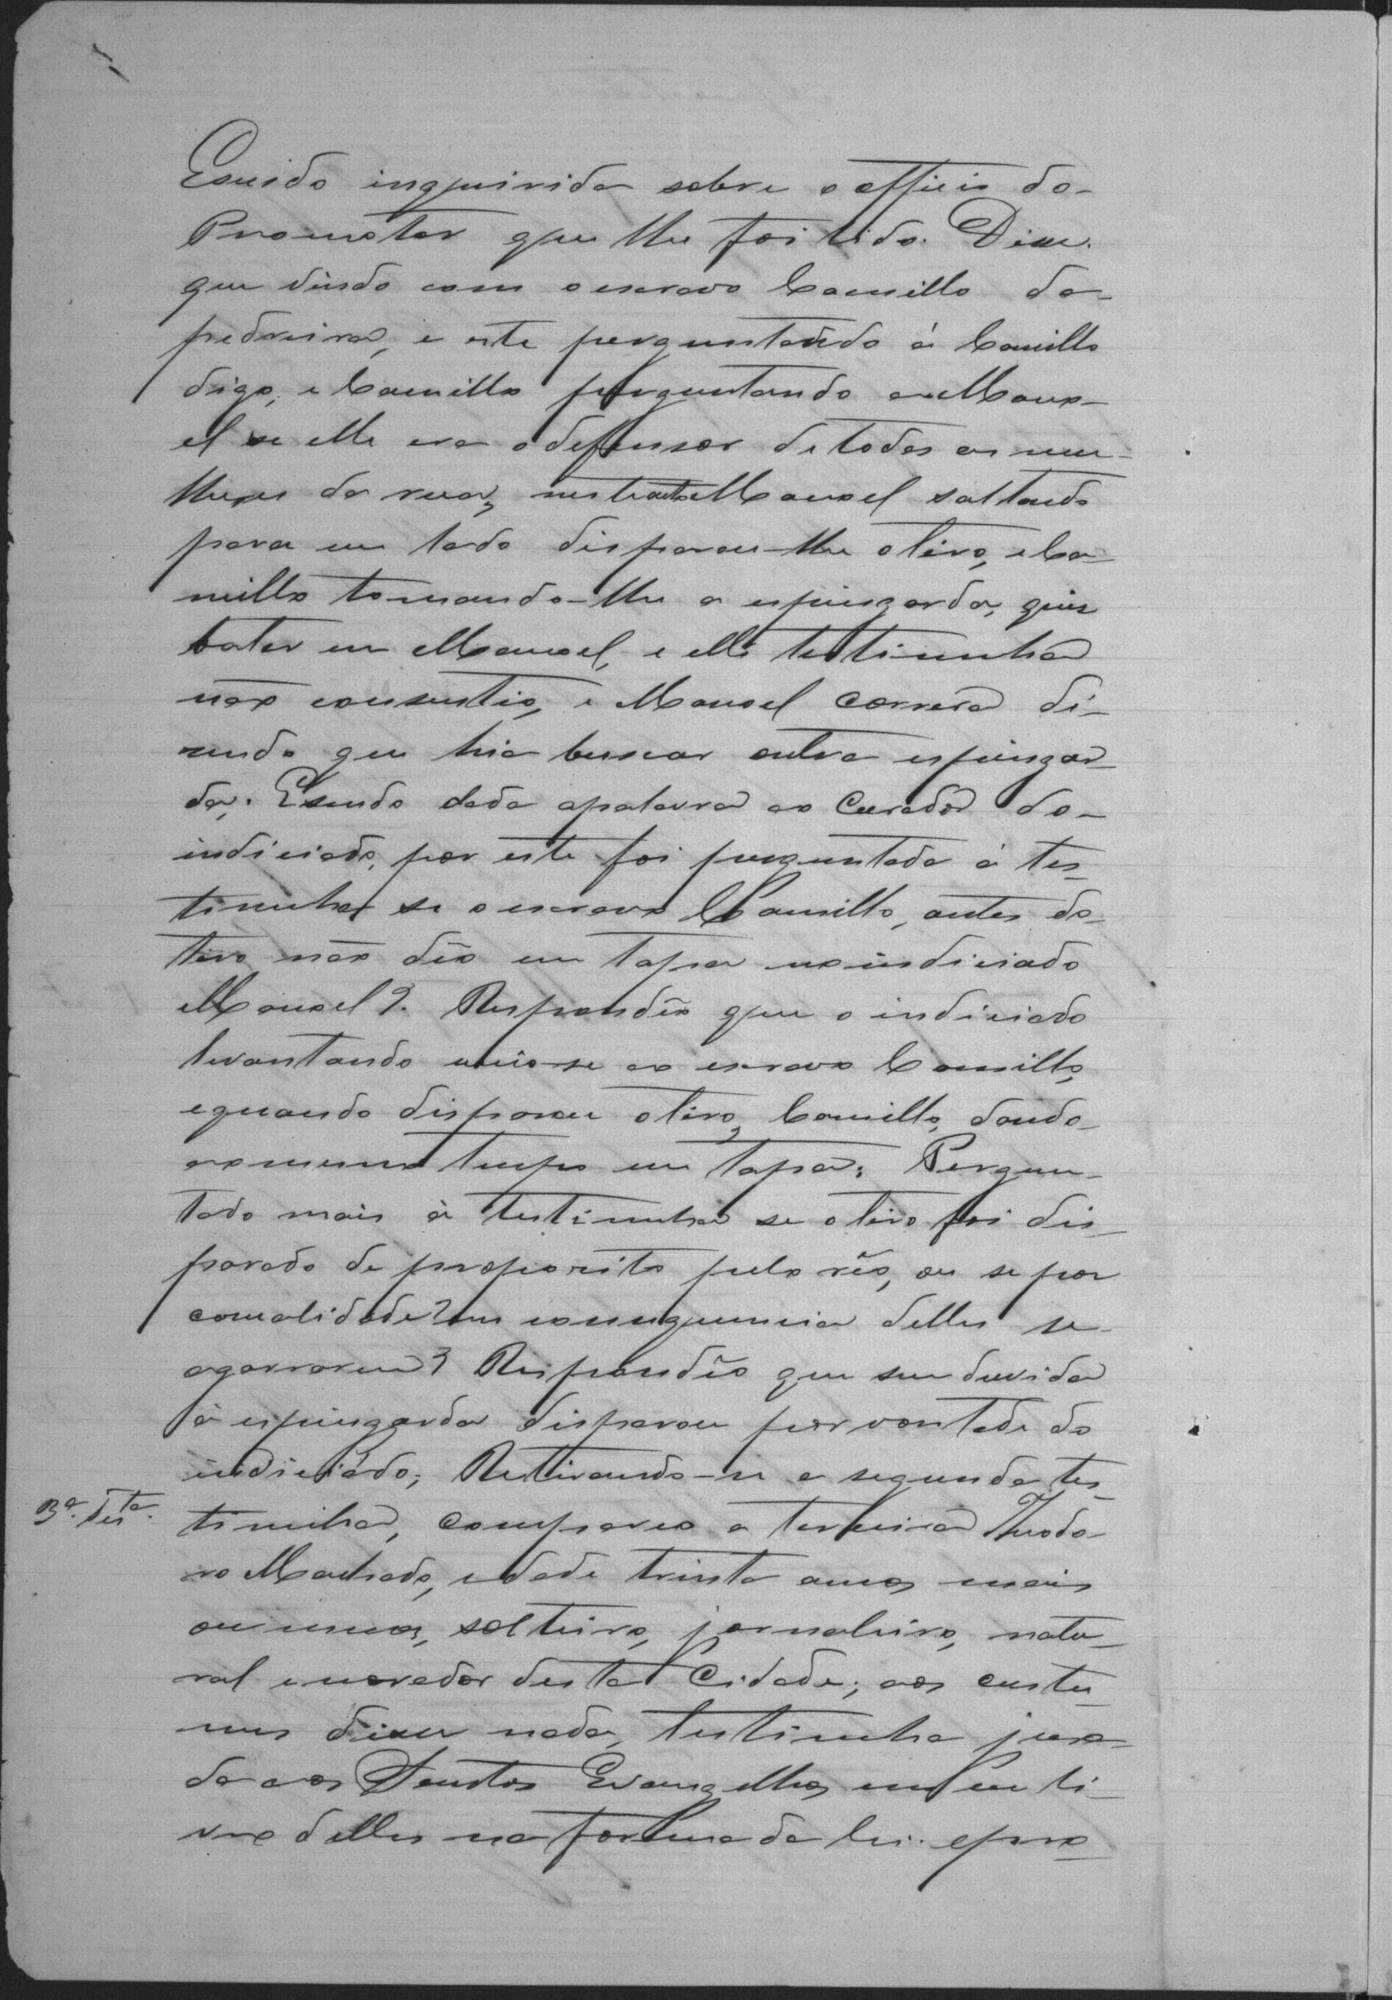 Esendo inquirida sobre o officio do
Promotor que lhe foi lido. Disse.
que vindo com o escravo Camillo da
pedreira, e este perguntando á Camillo
digo, e Camillo perguntando a Mano-
el se elle era o defensor de todas as mu-
lheres da rua, nestracto Manoel saltando
para um lado disparou-lhe o tiro, e Ca-
millo tomando-lhe a espingarda, quis
bater em Manoel, e elle testimunha
não consentio, e Manoel correra di-
zendo que hia buscar outra espingar-
da; Esendo dada apalavra ao Curador do
indiciado, por este foi preguntada á tes-
timunha se o escravo Camillo, antes do
tiro não dêo um tapa no indiciado
Manoel?. Respondêo que o indiciado
levantando unio-se ao escravo Camillo,
equando disparou otiro, Camillo, dando
aomesmo tempo um tapa; Pergun-
tado mais á testimunha se o tiro foi dis-
parado de proposito pelo réo, ou se por
casualidade em consequencia delles se
agarrarem? Respondêo que sem duvida
á espingarda disparou por vontade do
indiciado; Retirando-se a segunda tes-
3ª. Testa. timunha, compareo a terceira Theodo-
ro Machado, edade trinta annos mais
ou menos, solteiro, jornaleiro, natu-
ral emorador desta Cidade; aos custu-
mes disse nada, testimunha jura-
da aos Santos Evangelhos em um li-
vro delles na forma da lei. epro-